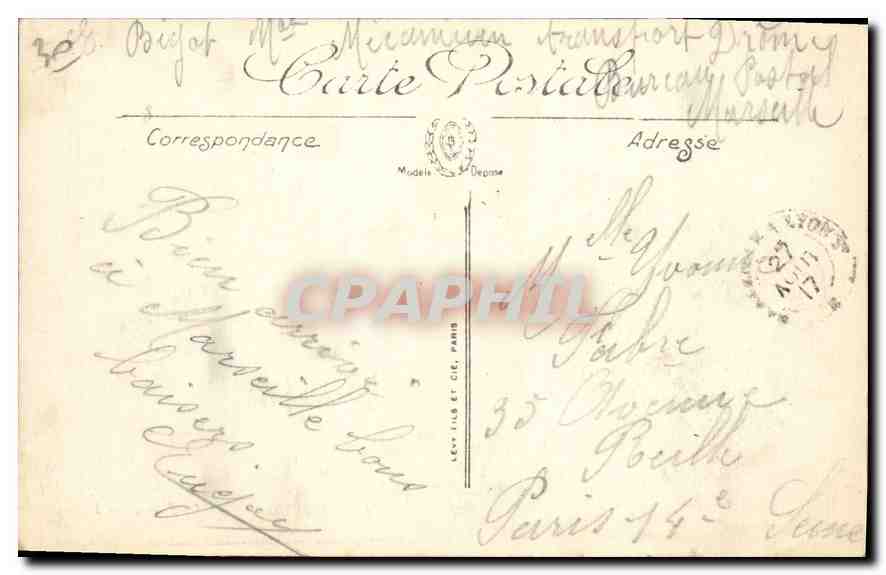 E. Bigot Mtre Mécanicien transport Drôme
Bureau Postal
Marseille
Carte Postale
Correspondance
Adresse
Modèle Déposé
Bien arrivé
à Marseille bons
baisers
LEVY FILS ET CIE, PARIS
Mlle Yvonne
Fabre
35 Avenue
Reille
Paris 14e Seine
LYON
27
AOUT
17
CPAPHIL